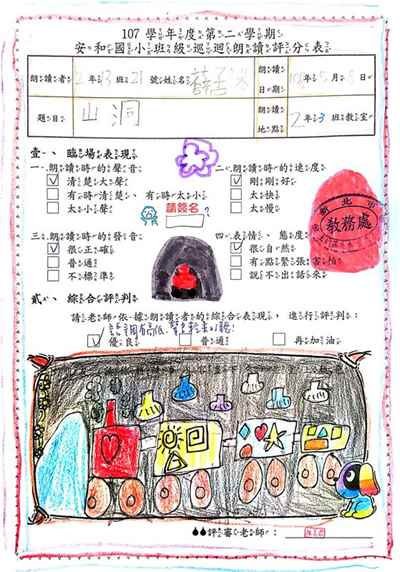 107學年度第二學期
安和國小班級巡迴朗讀評分表
朗讀者 2年13班21號姓名
朗讀日期
題目 山洞
朗讀地點 2年3班教室
壹、臨場表現
一、朗讀時的聲音
清楚大聲
有時清楚、有時太小
太小聲
二、朗讀時的速度
剛剛好
太快
太慢
請簽名
三、朗讀時的發音
很正確
普通
不標準
四、表情、態度
很自然
有點緊張害怕
說不出話來
新北市
教務處
貳、綜合評判
請老師依據朗讀者的綜合表現,進行評判:
優良
普通
再加油
評審老師: